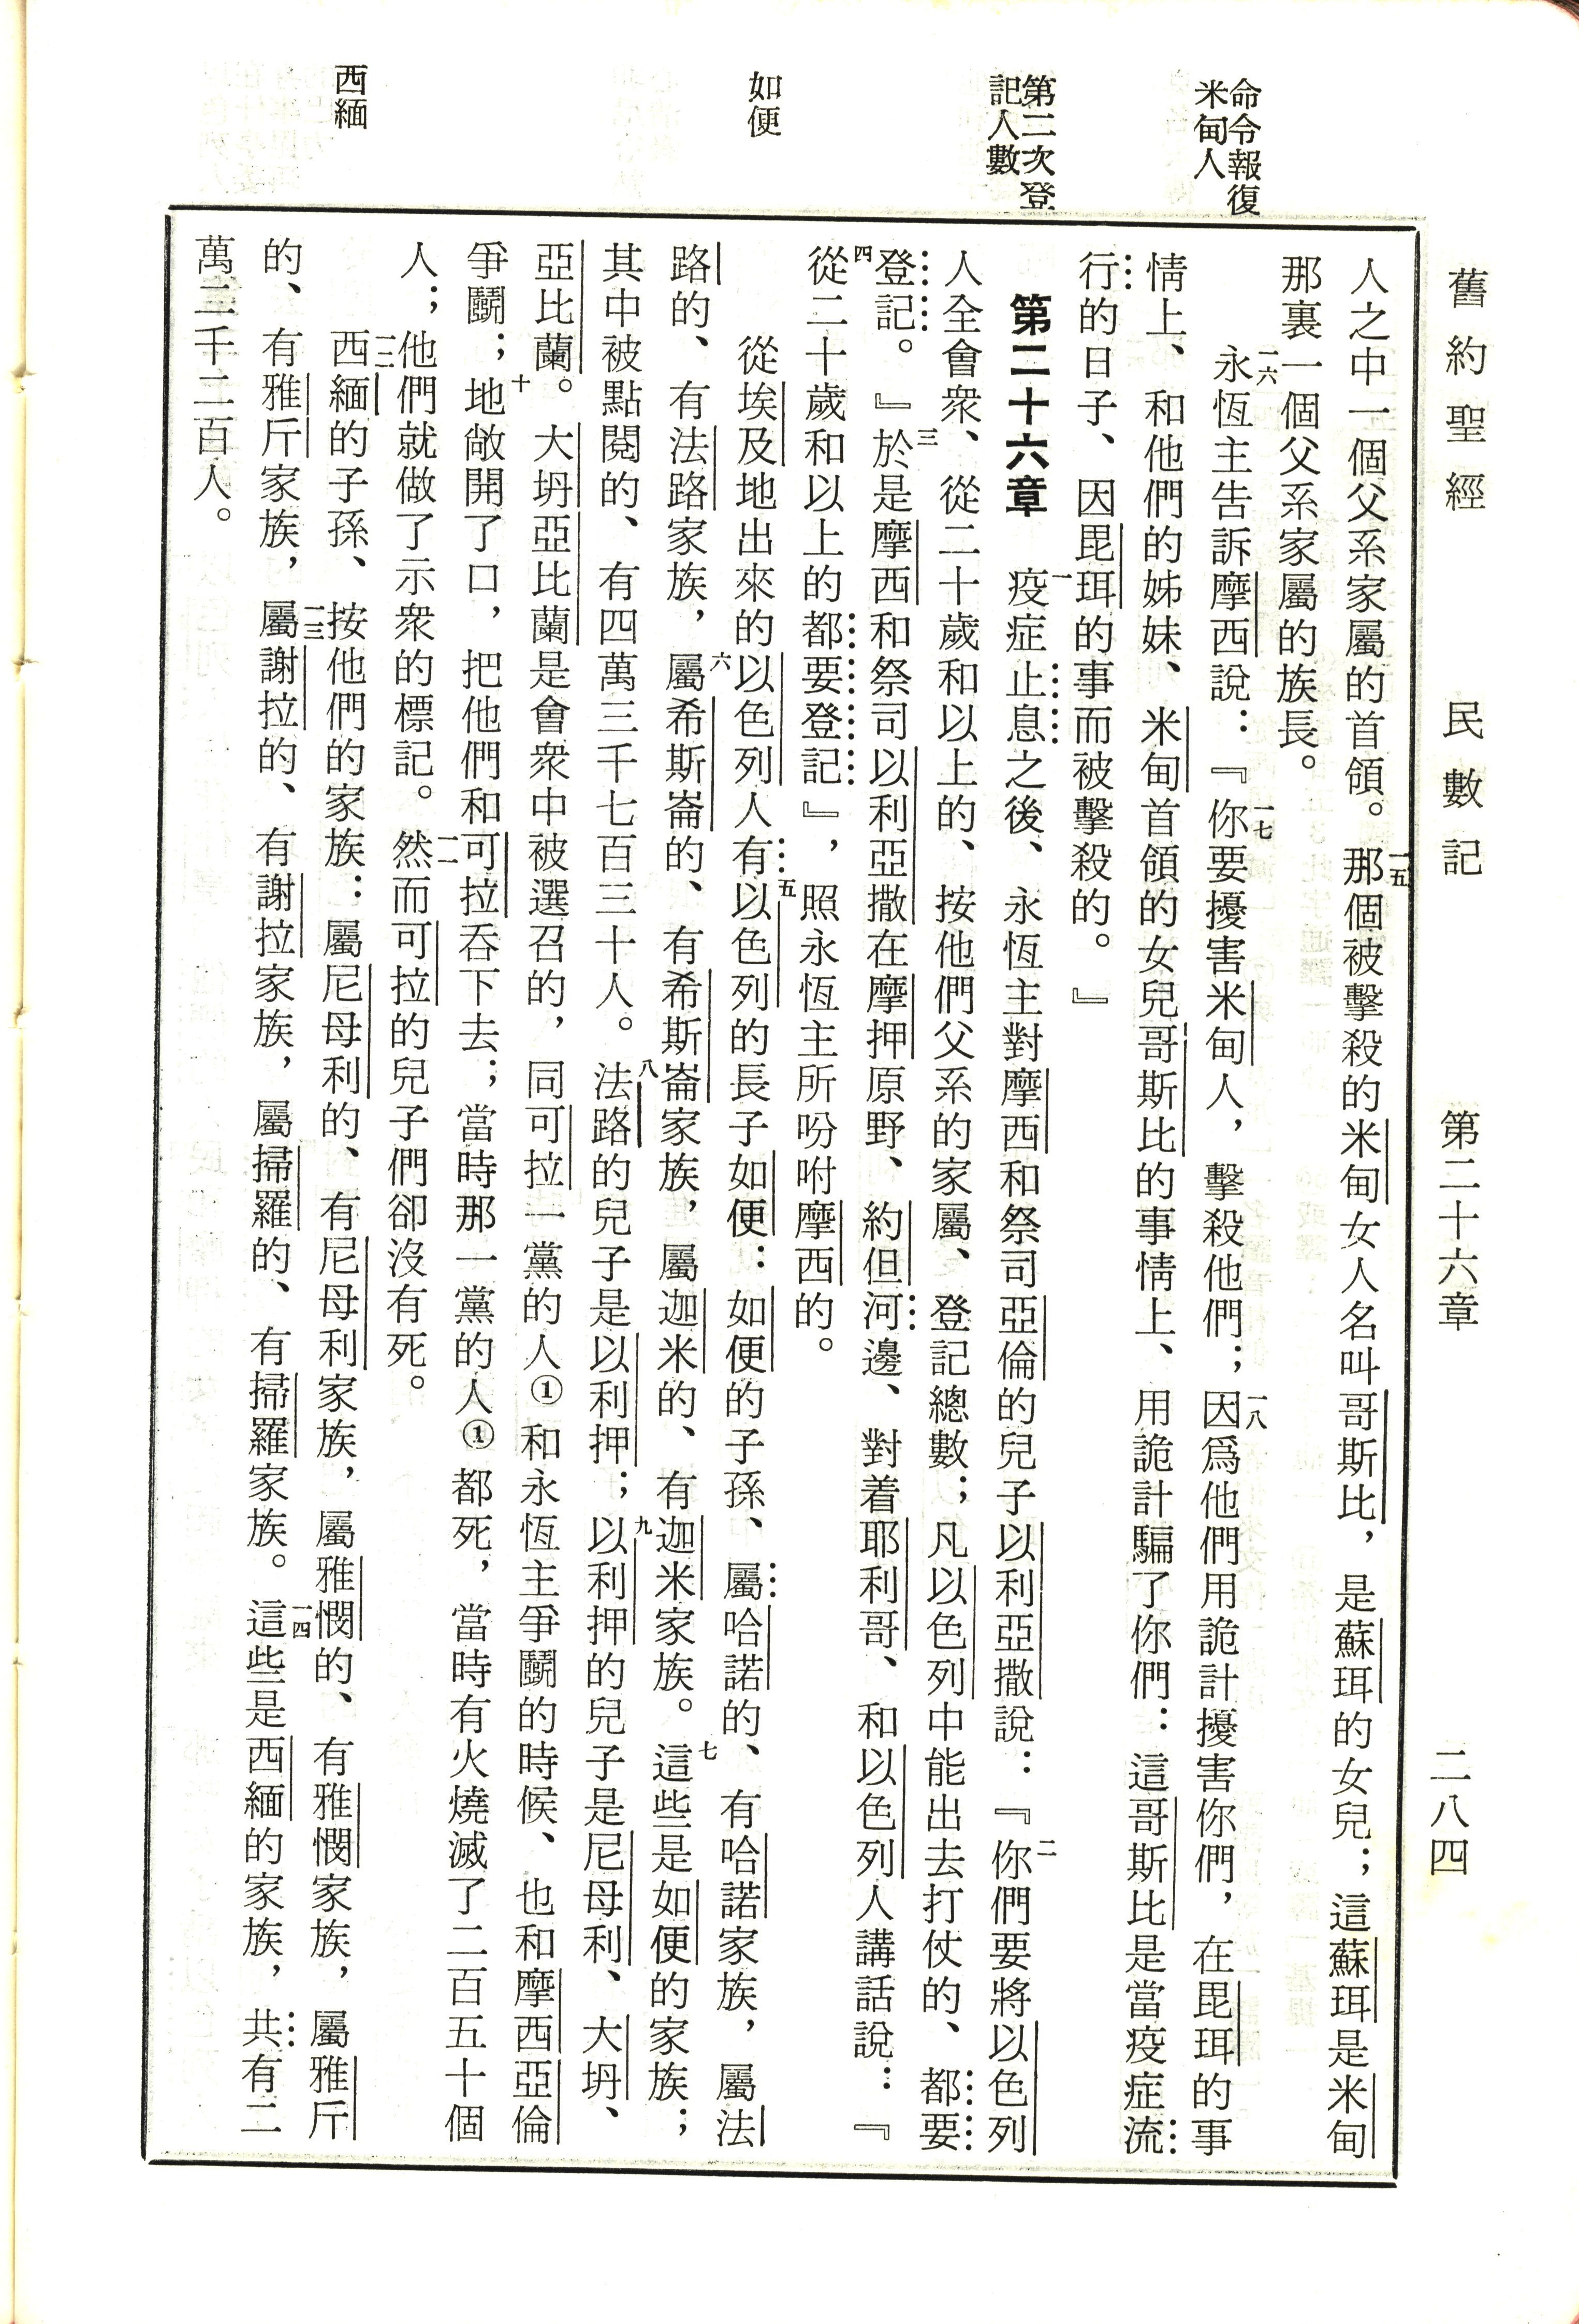 舊約聖經　民數記　第二十六章　二八四
命令報復
米甸人
第二次登
記人數
如便
西緬
人之中一個父系家屬的首領。一五那個被擊殺的米甸女人名叫哥斯比，是蘇珥的女兒；這蘇珥是米甸
那裏一個父系家屬的族長。
一六永恆主告訴摩西說：『一七你要擾害米甸人，擊殺他們；一八因爲他們用詭計擾害你們，在毘珥的事
情上、和他們的姊妹、米甸首領的女兒哥斯比的事情上、用詭計騙了你們：這哥斯比是當疫症流
行的日子、因毘珥的事而被擊殺的。』
第二十六章　一疫症止息之後、永恆主對摩西和祭司亞倫的兒子以利亞撒說：『二你們要將以色列
人全會衆、從二十歲和以上的、按他們父系的家屬、登記總數；凡以色列中能出去打仗的、都要
登記。』三於是摩西和祭司以利亞撒在摩押原野、約但河邊、對着耶利哥、和以色列人講話說：『
四從二十歲和以上的都要登記』，照永恆主所吩咐摩西的。
從埃及地出來的以色列人有五以色列的長子如便：如便的子孫、屬哈諾的、有哈諾家族，屬法
路的、有法路家族，六屬希斯崙的、有希斯崙家族，屬迦米的、有迦米家族。七這些是如便的家族；
其中被點閱的、有四萬三千七百三十人。八法路的兒子是以利押；九以利押的兒子是尼母利、大坍、
亞比蘭。大坍亞比蘭是會衆中被選召的，同可拉一黨的人①和永恆主爭鬭的時候、也和摩西亞倫
爭鬭；十地敞開了口，把他們和可拉吞下去；當時那一黨的人①都死，當時有火燒滅了二百五十個
人；他們就做了示衆的標記。一一然而可拉的兒子們卻沒有死。
一二西緬的子孫、按他們的家族：屬尼母利的、有尼母利家族，屬雅憫的、有雅憫家族，屬雅斤
的、有雅斤家族，一三屬謝拉的、有謝拉家族，屬掃羅的、有掃羅家族。一四這些是西緬的家族，共有二
萬二千二百人。